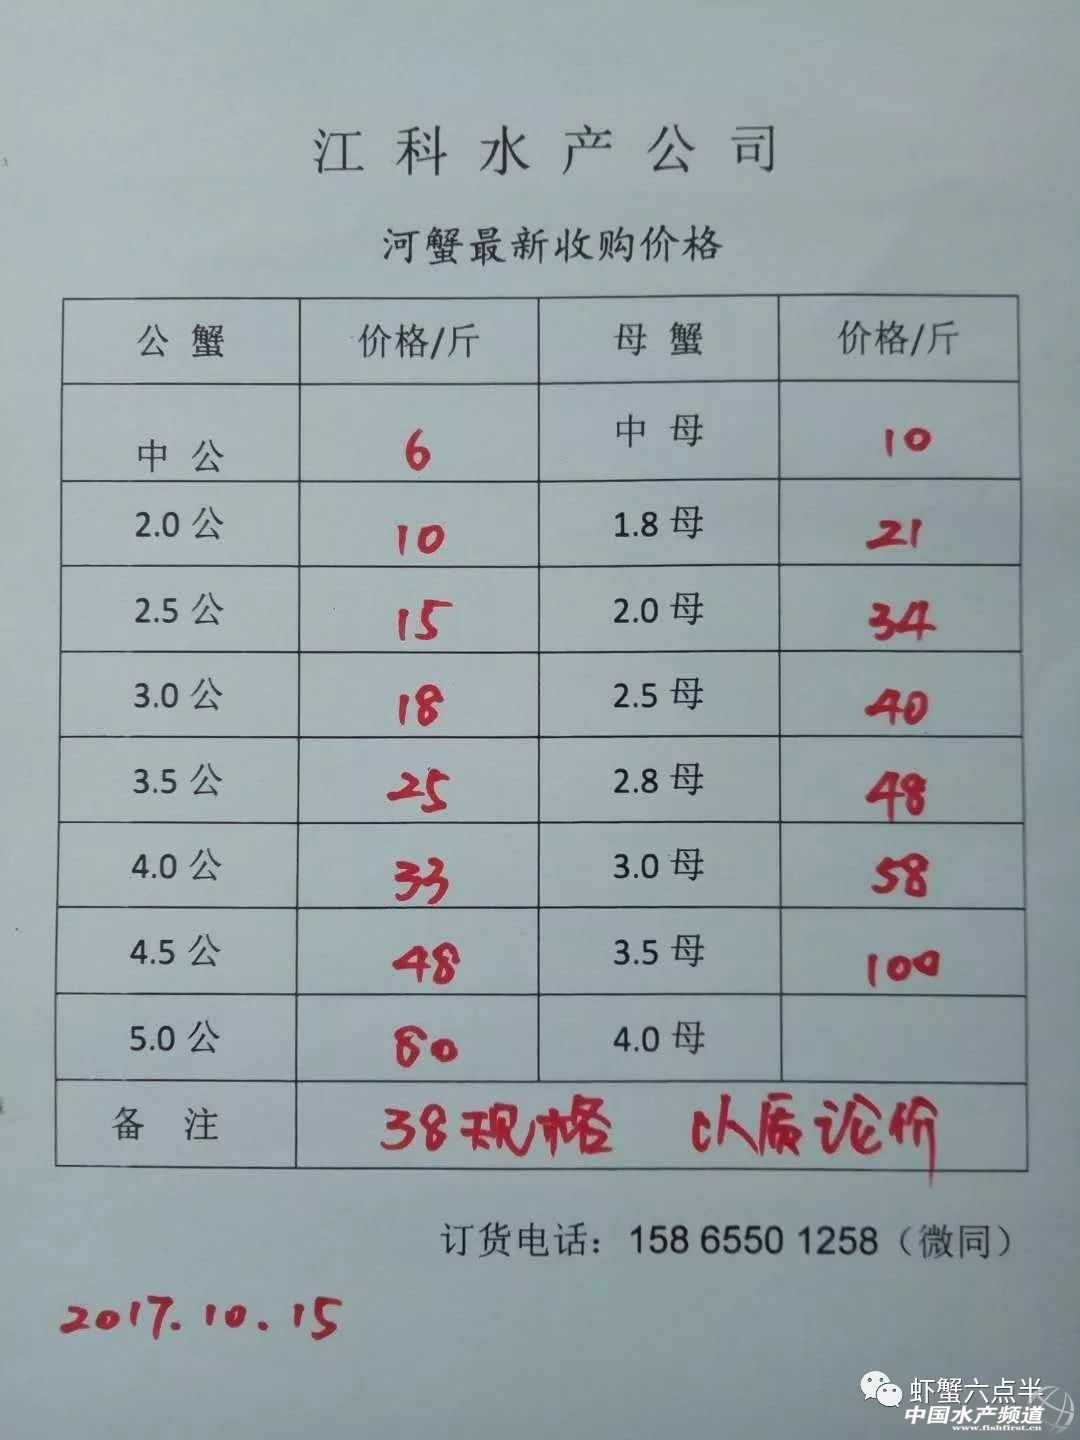 江科水产公司
河蟹最新收购价格
公蟹 价格/斤 母蟹 价格/斤
中公 6 中母 10
2.0公 10 1.8母 21
2.5公 15 2.0母 34
3.0公 18 2.5母 40
3.5公 25 2.8母 48
4.0公 33 3.0母 58
4.5公 48 3.5母 100
5.0公 80 4.0母
备注 38规格 以质论价
订货电话：158 6550 1258（微同）
2017.10.15
虾蟹六点半
中国水产频道
www.fishfirst.cn